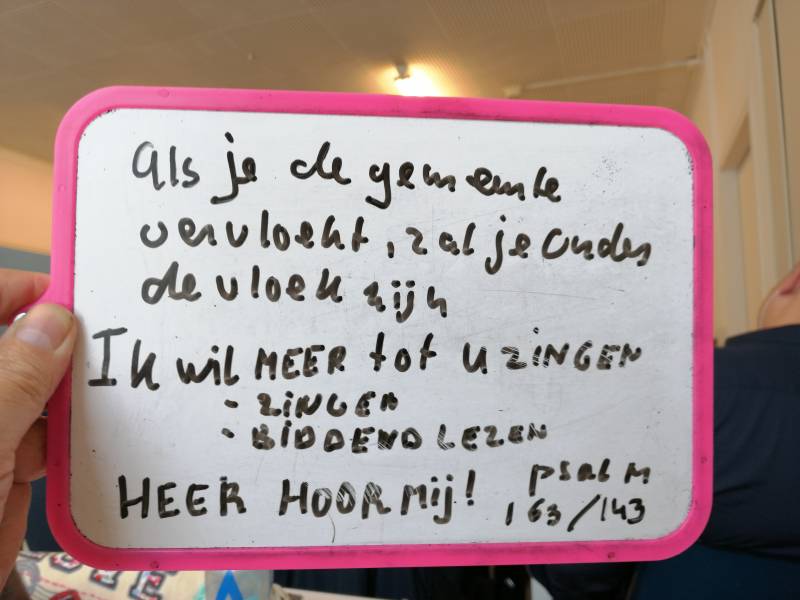 Als je de gemeente
vervloekt, zal je onder
de vloek zijn
Ik wil MEER tot U ZINGEN
- ZINGEN
- BIDDEND LEZEN
HEER HOOR Mij!
psalm
163/143